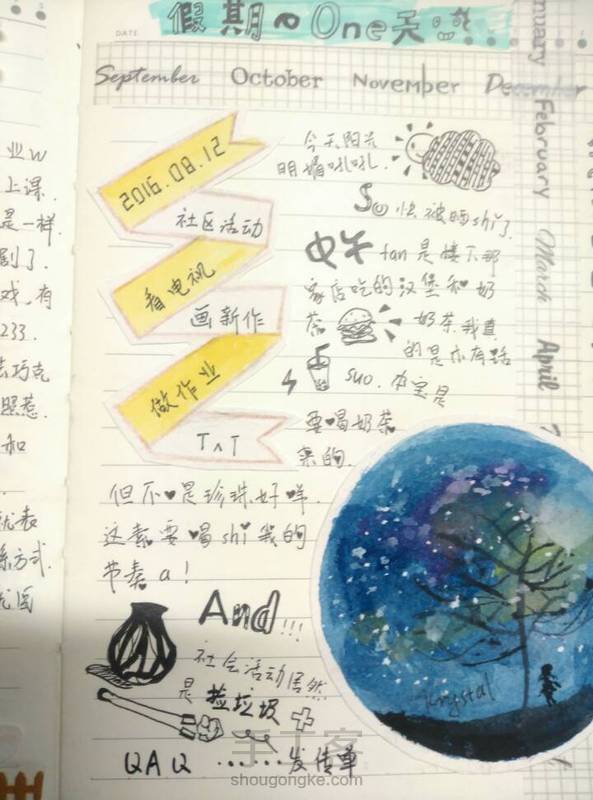 假期の One天
DATE
September October November December
nuary February March April
2016.08.12
社区活动
看电视
画新作
做作业
T^T
今天阳光
明媚吼吼.
So 快被晒shi了
中午 fan 是楼下那
家店吃的汉堡和奶
茶 奶茶我真
的是木有话
suo. 本宝是
要喝奶茶
来的
但不是珍珠好咩.
这素要喝shi我的
节奏a!
And!!!
社会活动居然
是捡垃圾+
QAQ ……发传单
Krystal
业w
上课.
是一样.
剧了.
戏.有
233.
巧克
照惹.
和
表
系方式.
图
手工客
shougongke.com